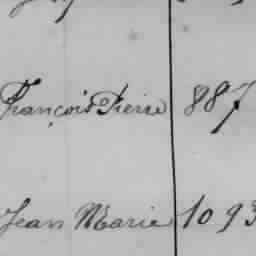 François Pierre 887
Jean Marie 1093